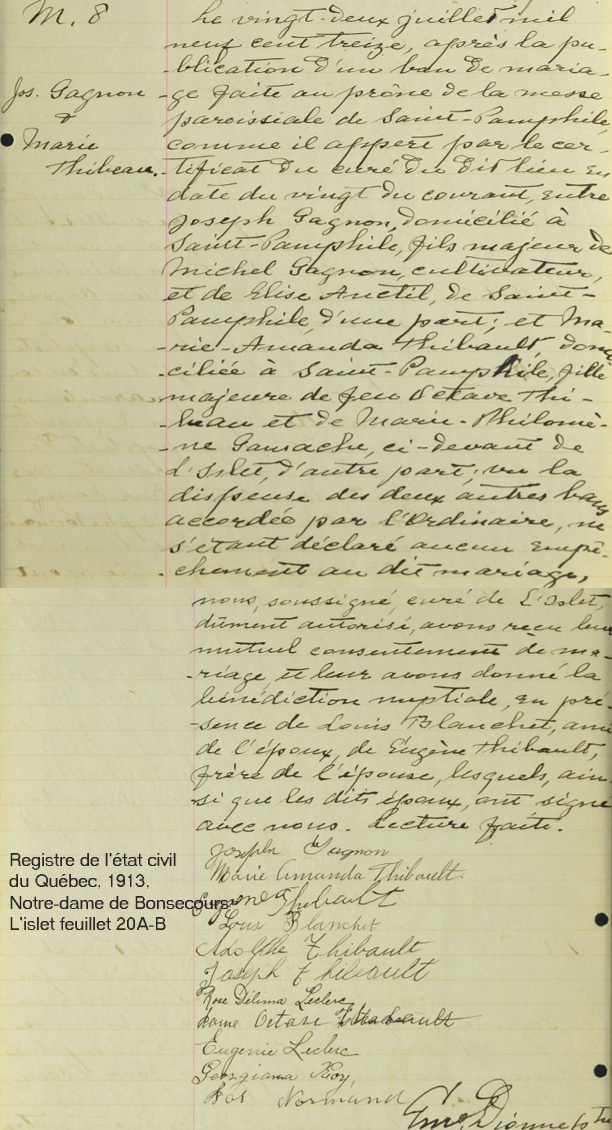 M. 8
Jos. Gagnon
&
Marie
Thibeau.
Le vingt-deux juillet mil
neuf cent treize, après la pu-
-blication d'un ban de maria-
-ge faite au prône de la messe
paroissiale de Saint-Pamphile,
comme il appert par le cer-
-tificat du curé du dit lieu en
date du vingt du courant, entre
Joseph Gagnon, domicilié à
Saint-Pamphile, fils majeur de
Michel Gagnon, cultivateur,
et de Elise Anctil, de Saint-
Pamphile, d'une part; et Ma-
-rie-Amanda Thibault, domi-
-ciliée à Saint-Pamphile, fille
majeure de feu Octave Thi-
-beau et de Marie-Philomè-
-ne Gamache, ci-devant de
L'Islet, d'autre part; vu la
dispense des deux autres bans
accordée par l'Ordinaire, ne
s'étant déclaré aucun empê-
-chement au dit mariage,
nous, soussigné, curé de L'Islet,
dûment autorisé, avons reçu leur
mutuel consentement de ma-
-riage, et leur avons donné la
bénédiction nuptiale, en pré-
-sence de Louis Blanchet, ami
de l'époux, de Eugène Thibault,
frère de l'épouse, lesquels, ain-
-si que les dits époux, ont signé
avec nous. Lecture faite.
Joseph Gagnon
Marie Amanda Thibault.
Eugene Thibault
Louis Blanchet
Adolphe Thibault
Joseph Thibault
Rose Délima Leclerc
Dame Octave Thibault
Eugenie Leclerc
Georgiana Roy,
Normand
Dionne
Registre de l'état civil
du Québec, 1913,
Notre-dame de Bonsecours
L'islet feuillet 20A-B